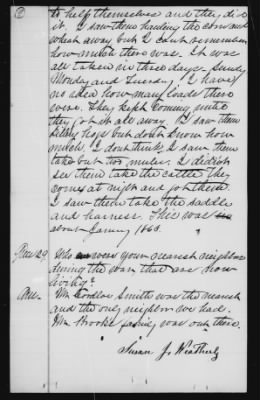 to help themselves and they did
it. I saw them hauling the corn and
wheat away but I dont remember
how much there was. It was
all taken in three days - Sunday
Monday and Tuesday, I have
no idea how many loads there
were. They kept coming until
they got it all away. I saw them
killing hogs but dont know how
much. I dont think I saw them
take but two mules. I didnt
see them take the cattle they
comes at night and got them.
I saw them take the saddle
and harness. This was
about January 1863.
Ques 29. Who were your nearest neighbors
during the war that are now
living?
Ans. Mr Smith was the nearest
and the only neighbor we had.
Mr Brooke was out there.
Susan J. Weatherly